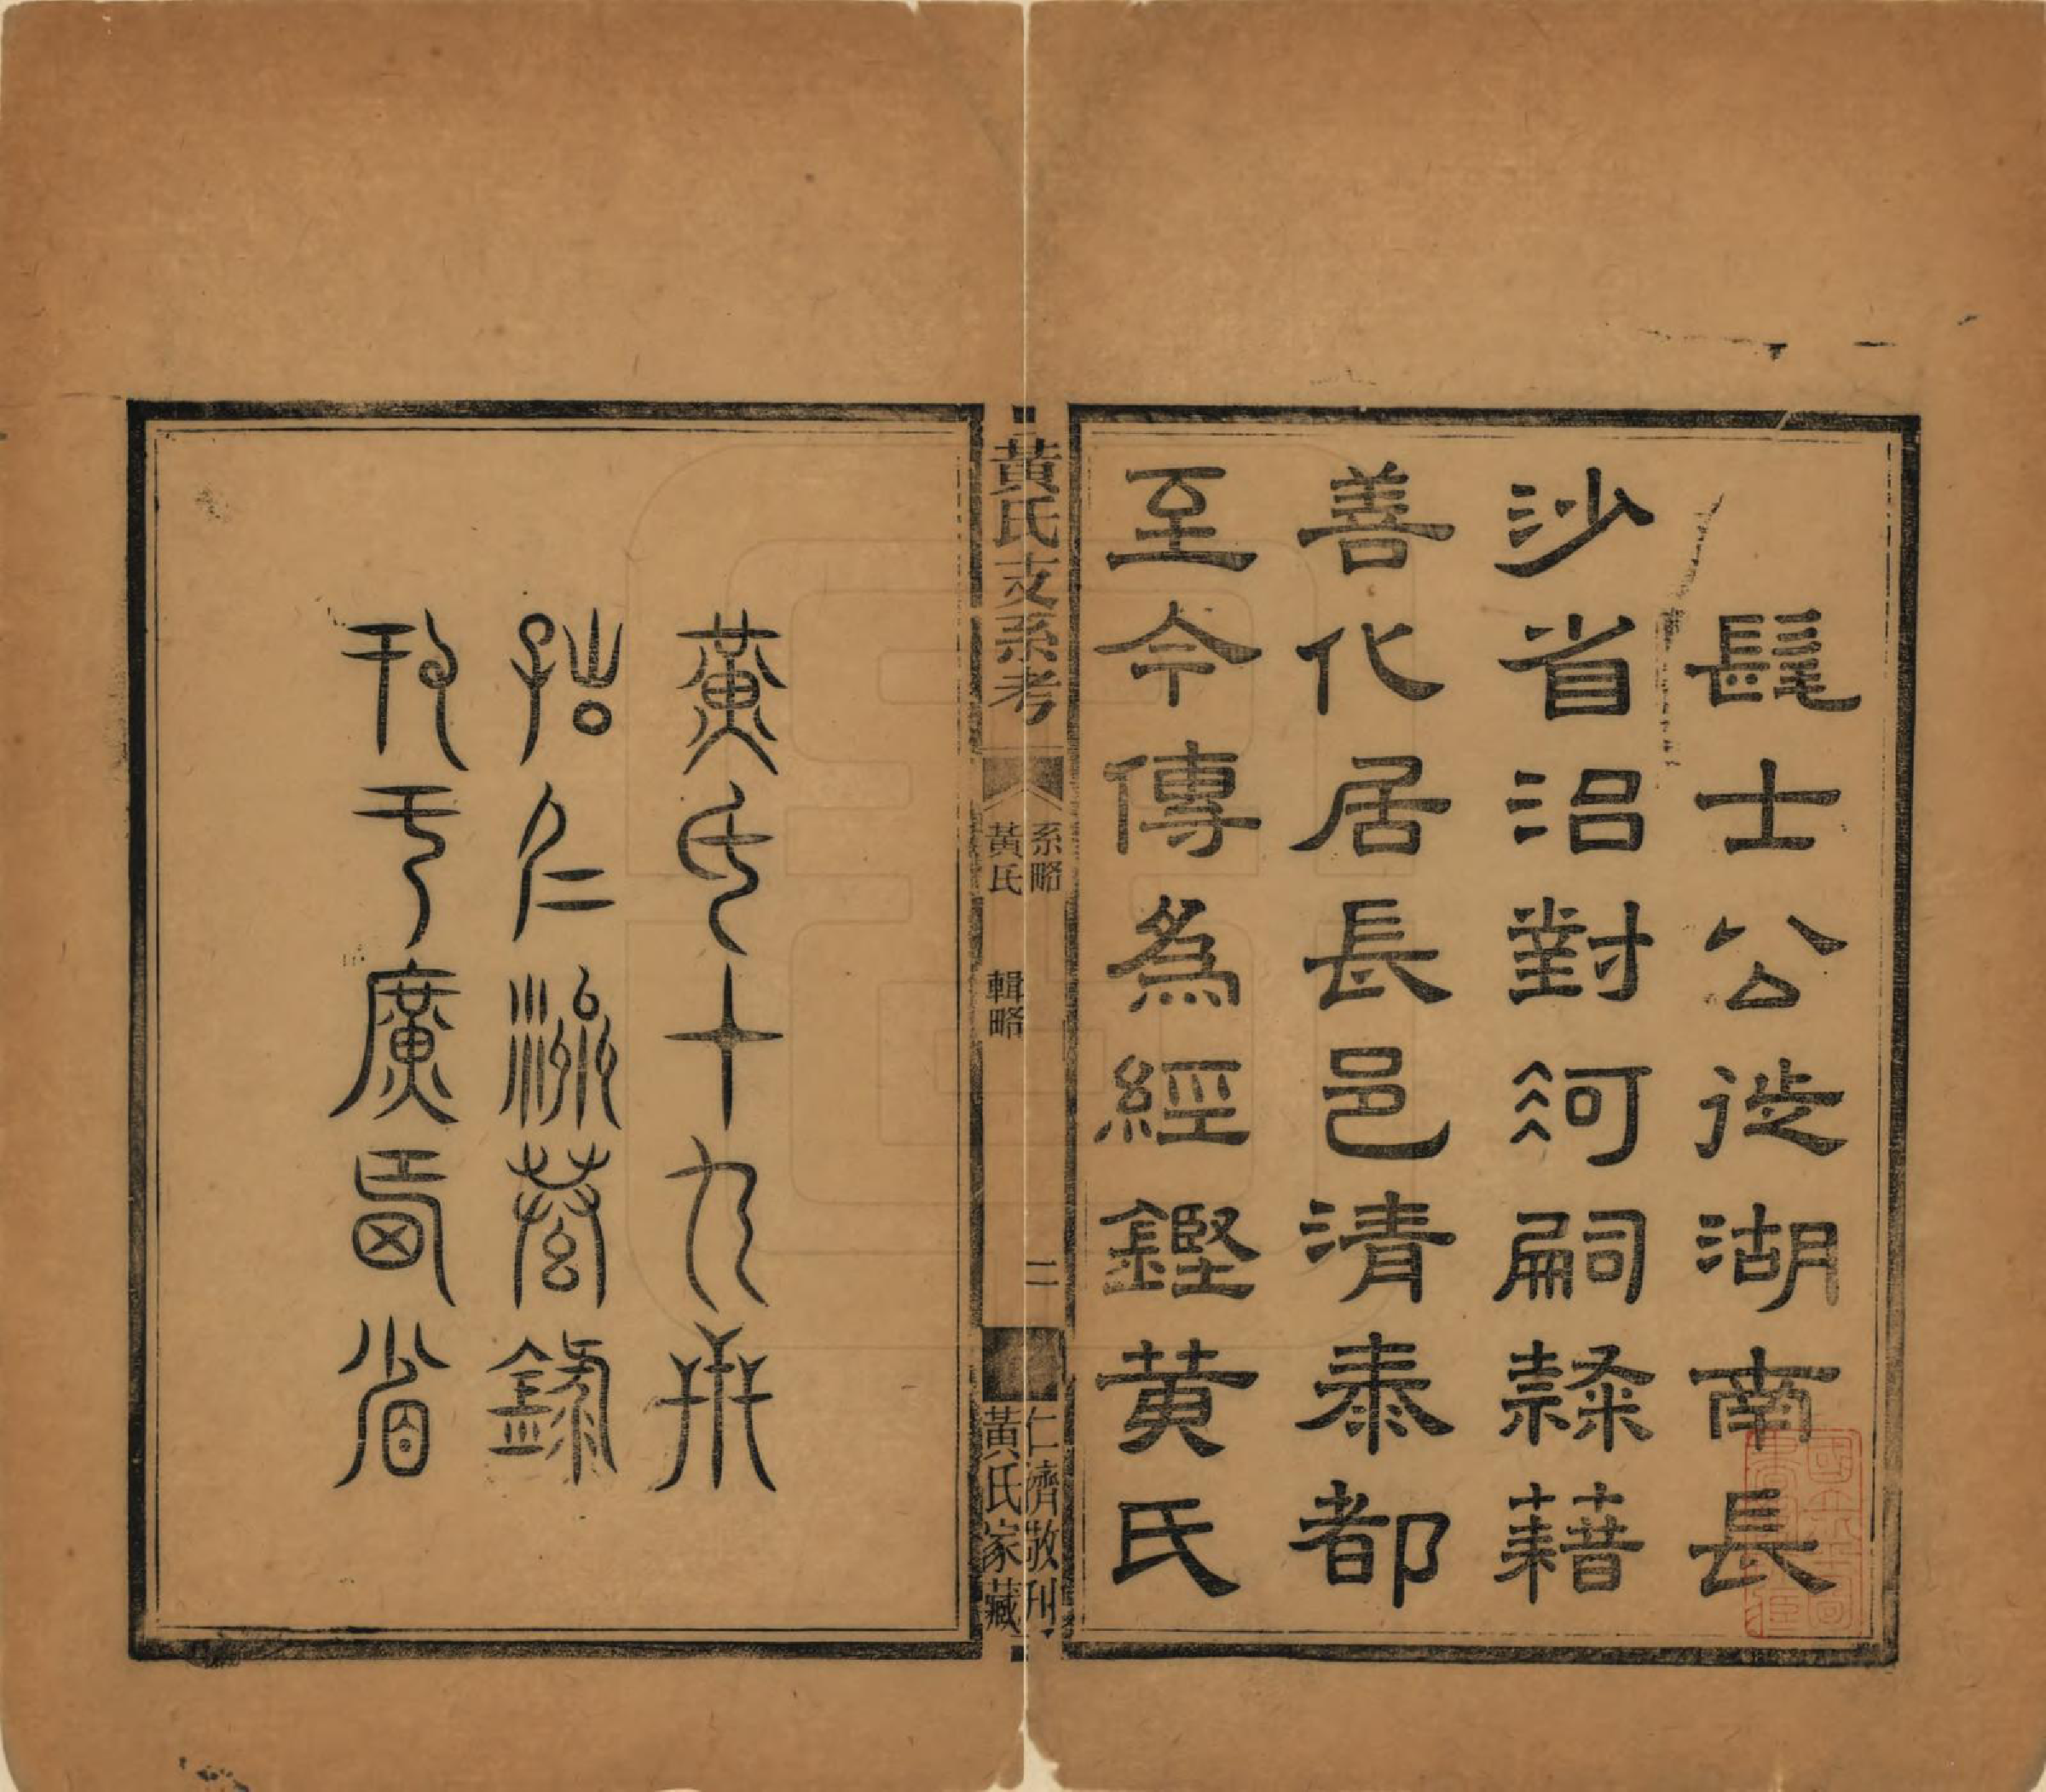 髦士公徙湖南長
沙省沿對河嗣隸藉
善化居長邑清泰都
至今傳為經鏗黄氏
黃氏支系考
系略
黃氏
輯略
二
仁濟敬刊
黃氏家藏
黄氏十九派
孫仁濟敬錄
刊于廣西省